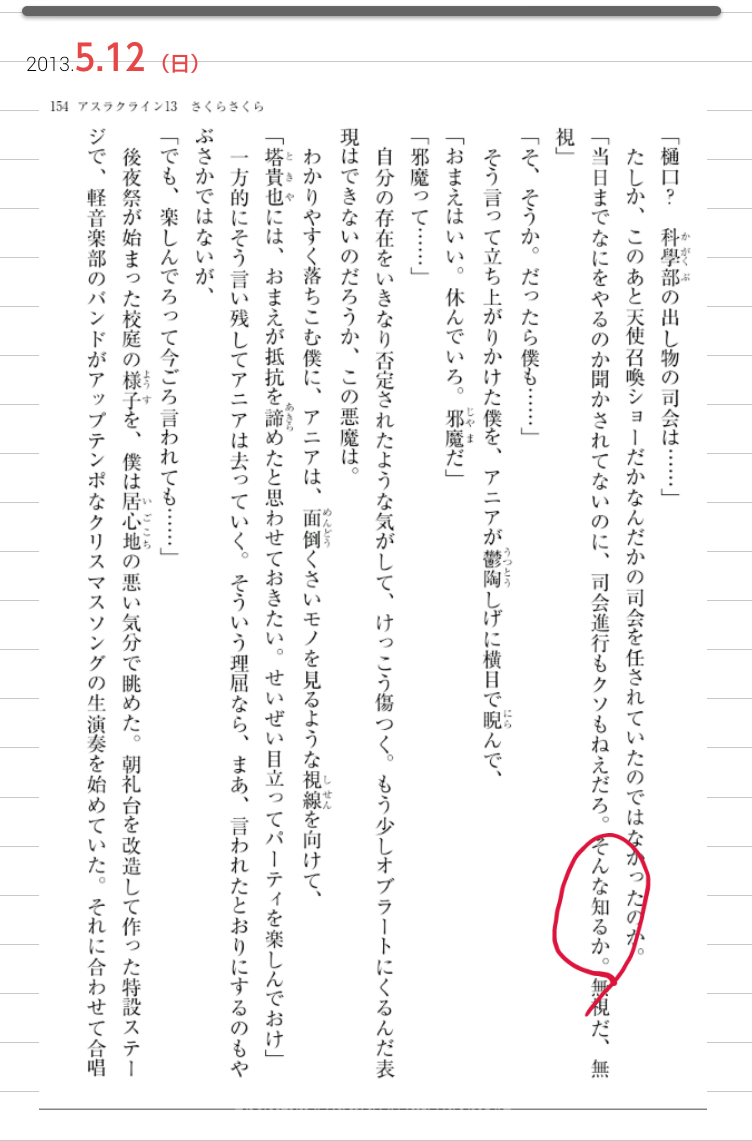 2013.5.12（日）
154 アスラクライン13 さくらさくら
「樋口？　科學部の出し物の司会は……」
たしか、このあと天使召喚ショーだかなんだかの司会を任されていたのではなかったのか。
「当日までなにをやるのか聞かされてないのに、司会進行もクソもねえだろ。そんな知るか。無視だ、無
視」
「そ、そうか。だったら僕も……」
そう言って立ち上がりかけた僕を、アニアが鬱陶しげに横目で睨んで、
「おまえはいい。休んでいろ。邪魔だ」
「邪魔って……」
自分の存在をいきなり否定されたような気がして、けっこう傷つく。もう少しオブラートにくるんだ表
現はできないのだろうか、この悪魔は。
わかりやすく落ちこむ僕に、アニアは、面倒くさいモノを見るような視線を向けて、
「塔貴也には、おまえが抵抗を諦めたと思わせておきたい。せいぜい目立ってパーティを楽しんでおけ」
一方的にそう言い残してアニアは去っていく。そういう理屈なら、まあ、言われたとおりにするのもや
ぶさかではないが、
「でも、楽しんでろって今ごろ言われても……」
後夜祭が始まった校庭の様子を、僕は居心地の悪い気分で眺めた。朝礼台を改造して作った特設ステー
ジで、軽音楽部のバンドがアップテンポなクリスマスソングの生演奏を始めていた。それに合わせて合唱